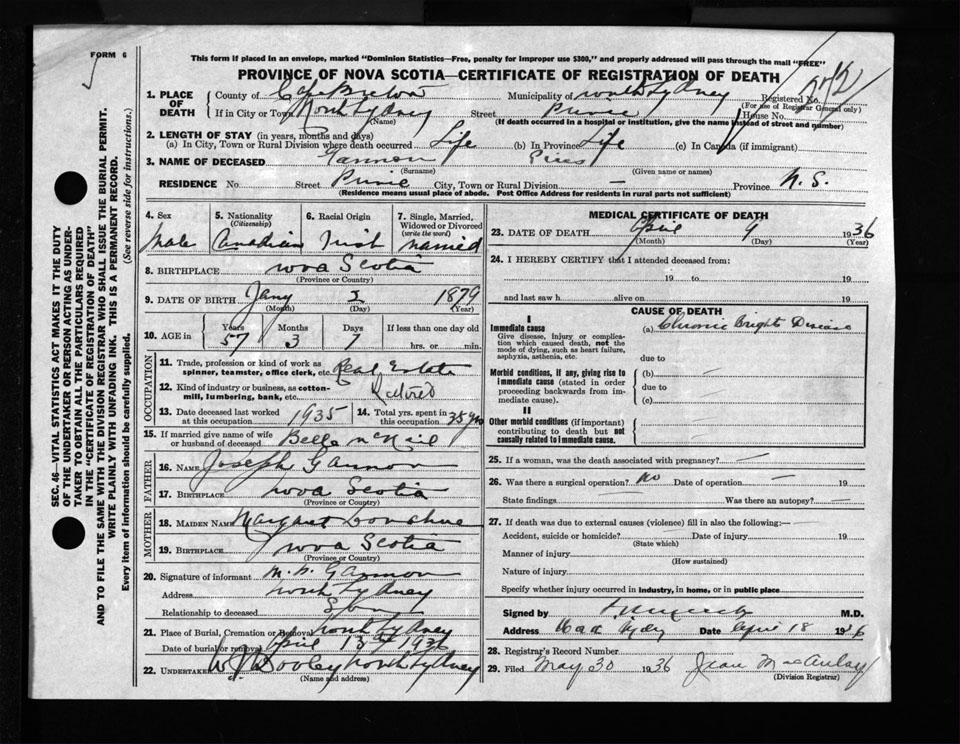 FORM 6
This form if placed in an envelope, marked "Dominion Statistics—Free, penalty for improper use $300," and properly addressed will pass through the mail "FREE"
PROVINCE OF NOVA SCOTIA—CERTIFICATE OF REGISTRATION OF DEATH
SEC. 46—VITAL STATISTICS ACT MAKES IT THE DUTY
OF THE UNDERTAKER OR PERSON ACTING AS UNDER-
TAKER TO OBTAIN ALL THE PARTICULARS REQUIRED
IN THE "CERTIFICATE OF REGISTRATION OF DEATH"
AND TO FILE THE SAME WITH THE DIVISION REGISTRAR WHO SHALL ISSUE THE BURIAL PERMIT.
WRITE PLAINLY WITH UNFADING INK. THIS IS A PERMANENT RECORD.
Every item of information should be carefully supplied. (See reverse side for instructions.)
1. PLACE OF DEATH County of Cape Breton Municipality of North Sydney Registered No. 272
(For use of Registrar General only)
If in City or Town North Sydney Street Pierce House No.
(Name) (If death occurred in a hospital or institution, give the name instead of street and number)
2. LENGTH OF STAY (in years, months and days)
(a) In City, Town or Rural Division where death occurred Life (b) In Province Life (c) In Canada (if immigrant)
3. NAME OF DECEASED Gannon
(Surname) (Given name or names)
RESIDENCE No. Street City, Town or Rural Division — Province N.S.
(Residence means usual place of abode. Post Office Address for residents in rural parts not sufficient)
4. Sex Male
5. Nationality (Citizenship) Canadian
6. Racial Origin Irish
7. Single, Married, Widowed or Divorced (write the word) married
8. BIRTHPLACE Nova Scotia
(Province or Country)
9. DATE OF BIRTH Jany 2 1879
(Month) (Day) (Year)
10. AGE in Years 57 Months 3 Days 7 If less than one day old hrs. or min.
OCCUPATION
11. Trade, profession or kind of work as spinner, teamster, office clerk, etc. Real Estate
12. Kind of industry or business, as cotton-mill, lumbering, bank, etc. Retired
13. Date deceased last worked at this occupation 1935
14. Total yrs. spent in this occupation 35 yrs
15. If married give name of wife or husband of deceased Belle McNeil
FATHER
16. NAME Joseph Gannon
17. BIRTHPLACE Nova Scotia
(Province or Country)
MOTHER
18. MAIDEN NAME Margaret Donahue
19. BIRTHPLACE Nova Scotia
(Province or Country)
20. Signature of informant Gannon
Address North Sydney
Relationship to deceased Son
21. Place of Burial, Cremation or Removal North Sydney
Date of burial or removal April 1936
22. UNDERTAKER W J Dooley North Sydney
(Name and address)
MEDICAL CERTIFICATE OF DEATH
23. DATE OF DEATH April 9 1936
(Month) (Day) (Year)
24. I HEREBY CERTIFY that I attended deceased from:
19 to 19
and last saw h alive on 19
CAUSE OF DEATH
I
Immediate cause (a) Chronic Bright Disease
Give disease, injury or complication which caused death, not the mode of dying, such as heart failure, asphyxia, asthenia, etc.
due to
Morbid conditions, if any, giving rise to immediate cause (stated in order proceeding backwards from immediate cause).
(b) —
due to
(c) —
II
Other morbid conditions (if important) contributing to death but not causally related to immediate cause.
25. If a woman, was the death associated with pregnancy? —
26. Was there a surgical operation? no Date of operation —
State findings — Was there an autopsy? —
27. If death was due to external causes (violence) fill in also the following:—
Accident, suicide or homicide? Date of injury 19
(State which)
Manner of injury
(How sustained)
Nature of injury
Specify whether injury occurred in industry, in home, or in public place
Signed by M.D.
Address Date April 18 1936
28. Registrar's Record Number
29. Filed May 30 1936 Jean MacAulay
(Division Registrar)